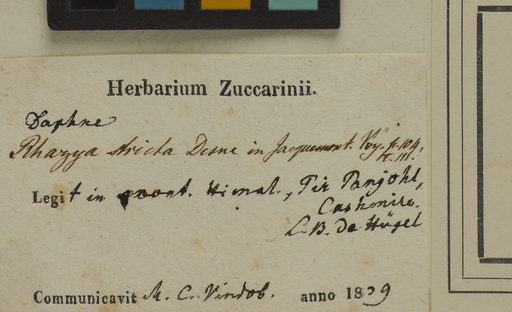 Herbarium Zuccarinii.
Daphne
Rhazya stricta Desne in Jacquemont. Voy. p. 104,
t. 111.
Legit in mont. Himal., Pir Panjohl,
Cashmire.
L. B. De Hügel
Communicavit M. C. Vindob. anno 1839